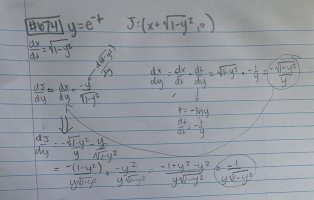 #674 y=e^-t J: (x+√1-y², 0)
dx/dt = √1-y²
dJ/dy = dx/dy + -y/√1-y²
dx/dy = dx/dt · dt/dy = √1-y² · -1/y = -√1-y²/y
t=-lny
dt/dy = -1/y
dJ/dy = -√1-y²/y - y/√1-y²
= -(1-y²)/y√1-y² + -y²/y√1-y² = -1+y²-y²/y√1-y² = -1/y√1-y²